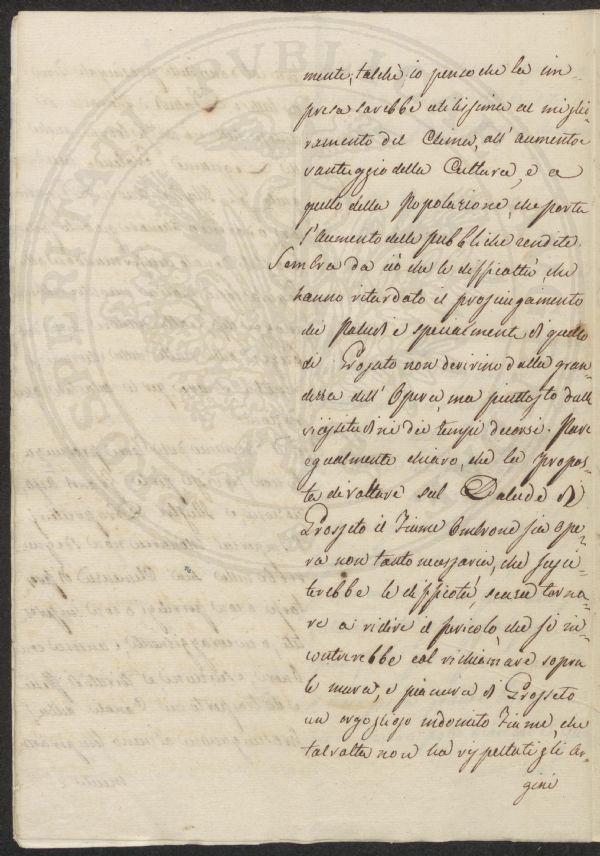 mente, talchè io penso che la im-
presa sarebbe utilissima al miglio-
ramento del Clima, all'aumento e
vantaggio della Cultura, e a
quello della Popolazione, che porta
l'aumento delle pubbliche rendite.
Sembra da ciò che le difficoltà, che
hanno ritardato il prosciugamento
dei Paludi e specialmente di quello
di Grosseto non derivino dalla gran-
dezza dell'Opera, ma piuttosto dalle
vicissitudini dei tempi decorsi. Pare
egualmente chiaro, che la propos-
ta di voltare sul Palude di
Grosseto il Fiume Ombrone sia ope-
ra non tanto necessaria, che susci-
terebbe le difficoltà, senza torna-
re a ridire il pericolo, che si in-
contrerebbe col richiamare sopra
le mura, e pianura di Grosseto
un orgoglioso indomito Fiume, che
talvolta non ha rispettati gli Ar-
gini